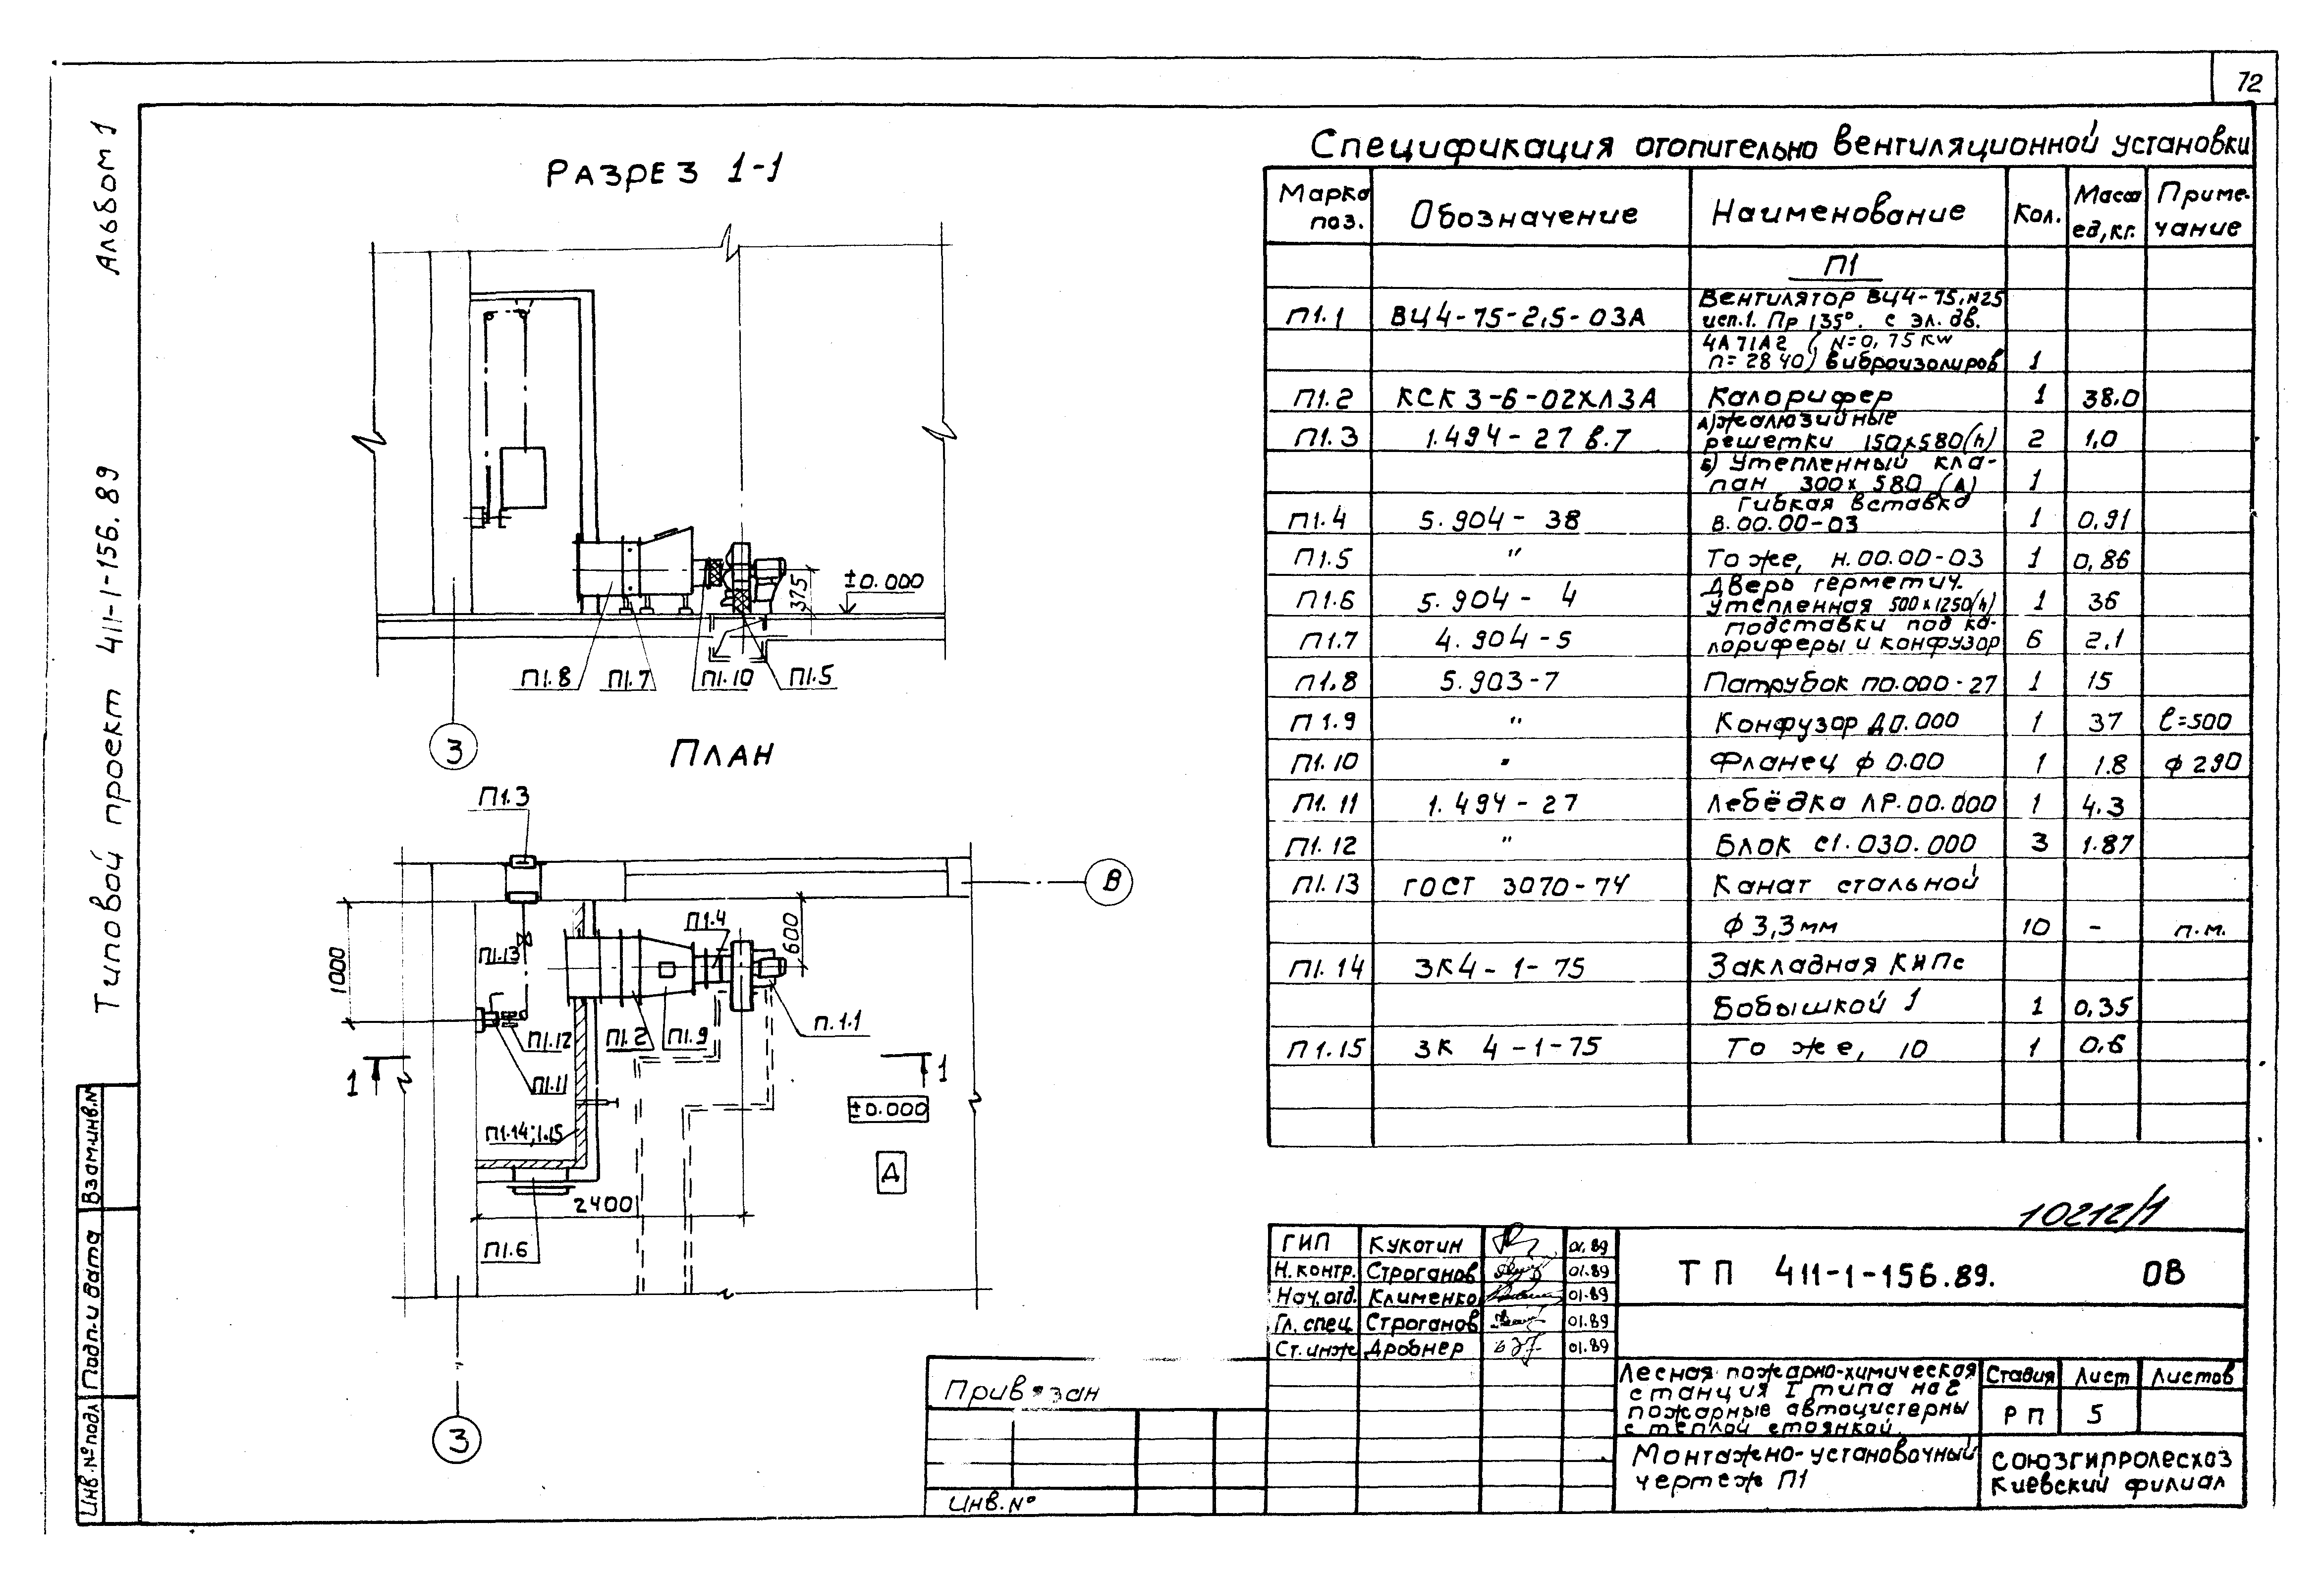 72
Альбом 1
Типовой проект 411-1-156.89
Взам.инв.№
Подп. и дата
Инв.№ подл
Разрез 1-1
±0.000
375
П1.8
П1.7
П1.10
П1.5
3
План
П1.3
В
П1.4
600
1000
П1.13
П1.12
П1.2
П1.9
П.1.1
П1.11
1
1
±0.000
П1.14;1.15
Д
2400
П1.6
3
Спецификация отопительно вентиляционной установки
Марка поз. Обозначение Наименование Кол. Масса ед,кг. Приме-чание
П1
П1.1 ВЦ4-75-2,5-03А Вентилятор ВЦ4-75,№25
исп.1. Пр 135°. с эл. дв.
4А71А2 (N=0,75 кw
n=2840) виброизолиров 1
П1.2 КСК 3-6-02ХЛ3А Калорифер 1 38.0
П1.3 1.494-27 в.7 А)жалюзийные
решетки 150х580(h) 2 1,0
Б) Утепленный кла-
пан 300х580 (А) 1
П1.4 5.904-38 Гибкая вставка
В.00.00-03 1 0,91
П1.5 " То же, Н.00.00-03 1 0,86
П1.6 5.904-4 Дверь герметич.
утепленная 500х1250(h) 1 36
П1.7 4.904-5 подставки под ка-
лориферы и конфузор 6 2.1
П1.8 5.903-7 Патрубок ПО.000-27 1 15
П1.9 " Конфузор ДО.000 1 37 ℓ=500
П1.10 " Фланец ф 0.00 1 1.8 ф 290
П1.11 1.494-27 Лебёдка ЛР.00.000 1 4.3
П1.12 " Блок с1.030.000 3 1.87
П1.13 ГОСТ 3070-74 Канат стальной
ф 3,3мм 10 - п.м.
П1.14 ЗК4-1-75 Закладная КИПс
Бобышкой 1 1 0,35
П1.15 ЗК 4-1-75 То же, 10 1 0.6
10212/1
ГИП Кукотин 01.89
Н.контр. Строганов 01.89
Нач.отд. Клименко 01.89
Гл. спец. Строганов 01.89
Ст.инж Дробнер 01.89
ТП 411-1-156.89. ОВ
Лесная пожарно-химическая
станция I типа на 2
пожарные автоцистерны
с теплой стоянкой.
Стадия Лист Листов
РП 5
Монтажно-установочный
чертеж П1
Союзгипролесхоз
Киевский филиал
Привязан
Инв.№